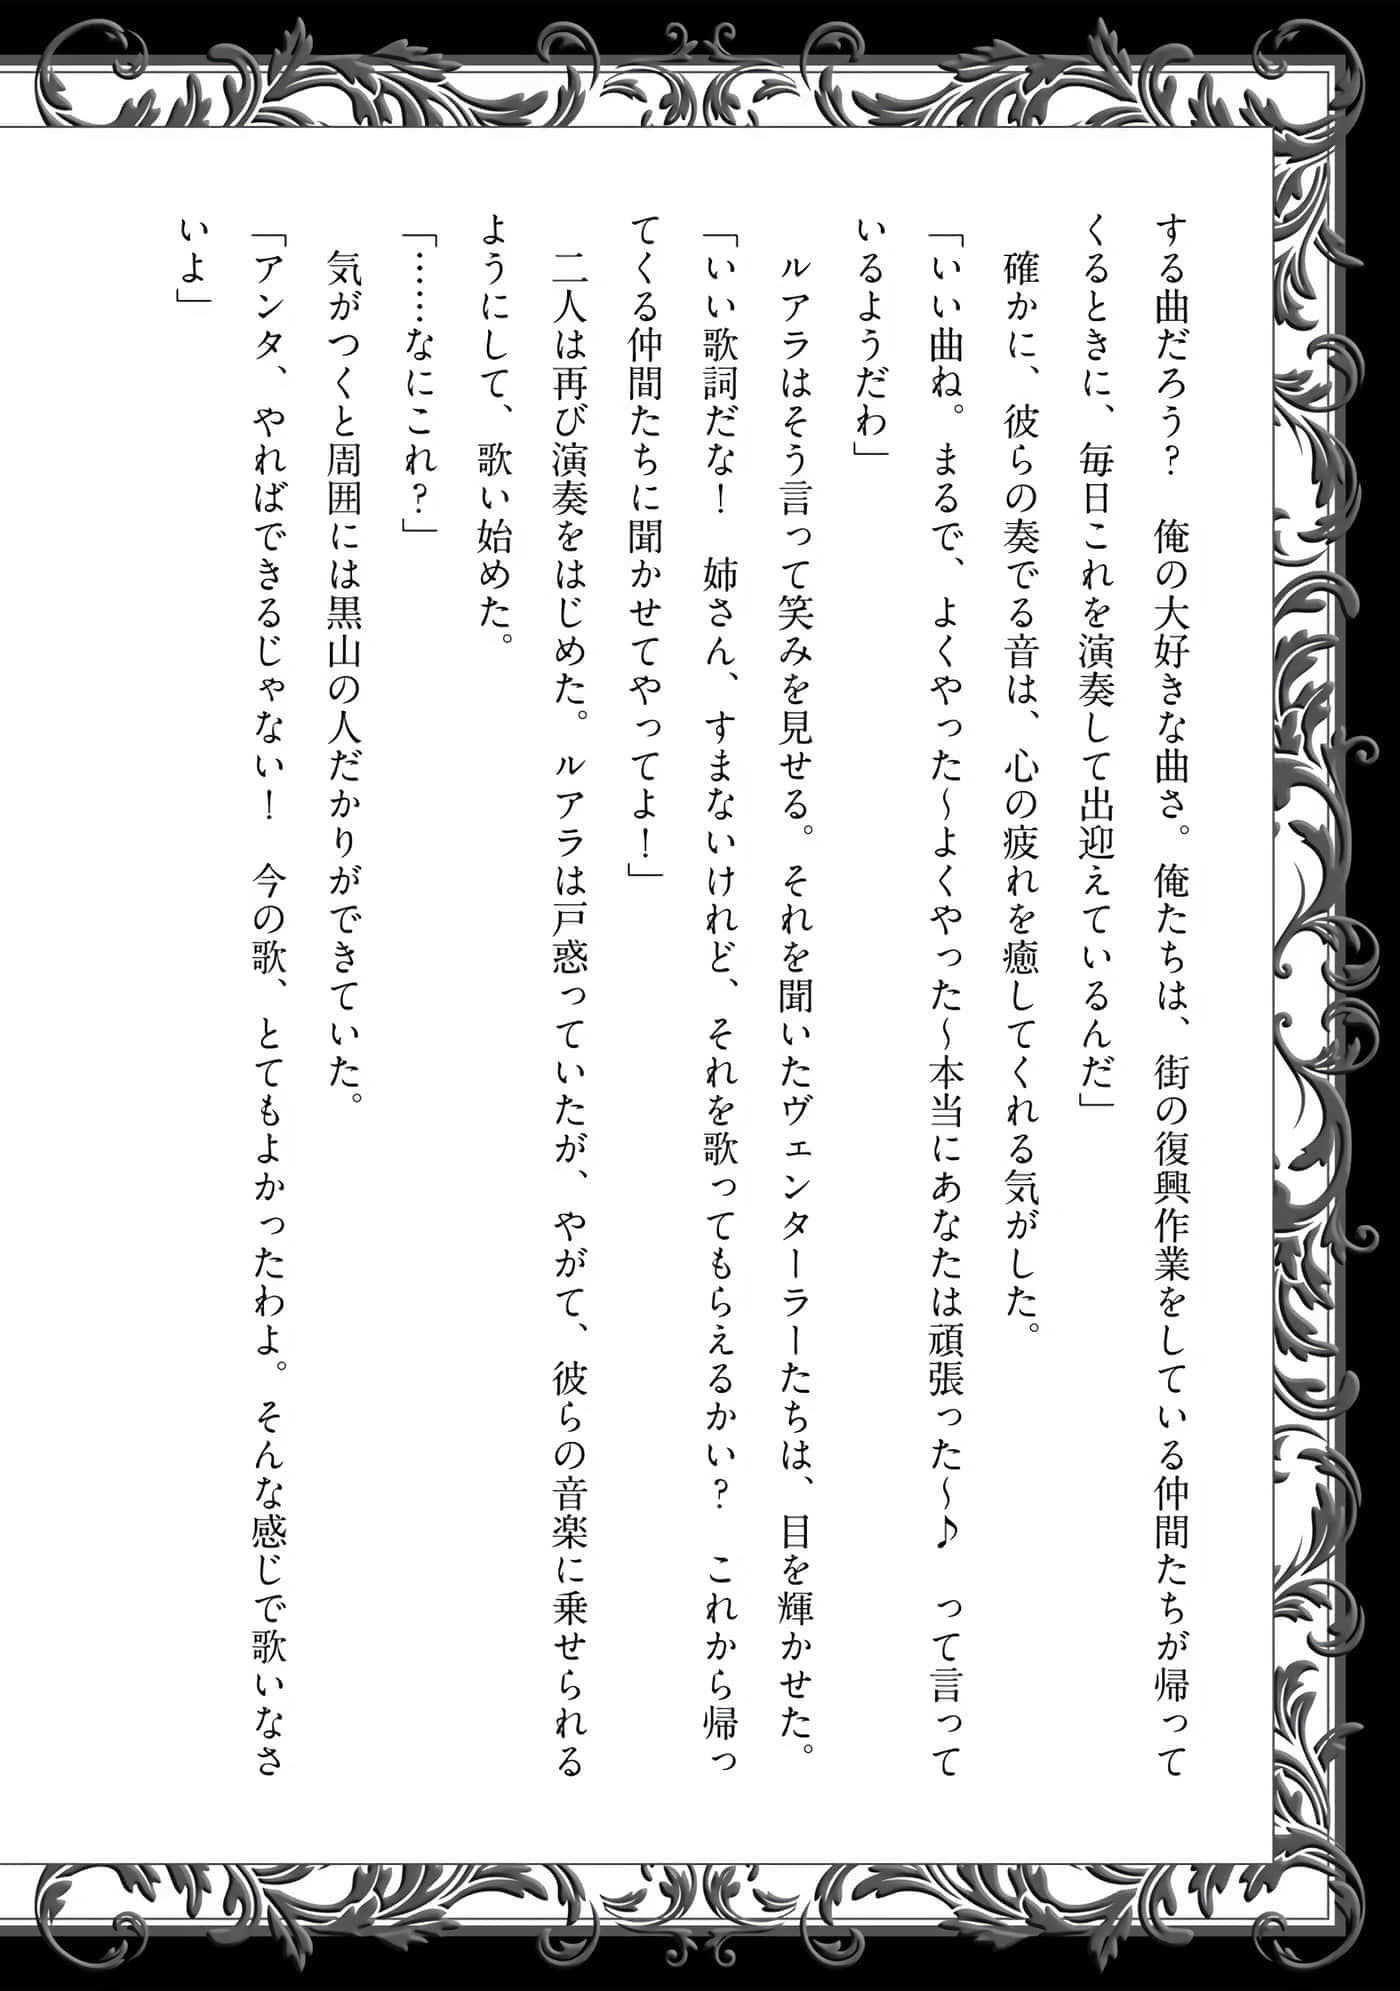 する曲だろう？　俺の大好きな曲さ。俺たちは、街の復興作業をしている仲間たちが帰って
くるときに、毎日これを演奏して出迎えているんだ」
　確かに、彼らの奏でる音は、心の疲れを癒してくれる気がした。
「いい曲ね。まるで、よくやった～よくやった～本当にあなたは頑張った～♪　って言って
いるようだわ」
　ルアラはそう言って笑みを見せる。それを聞いたヴェンターラーたちは、目を輝かせた。
「いい歌詞だな！　姉さん、すまないけれど、それを歌ってもらえるかい？　これから帰っ
てくる仲間たちに聞かせてやってよ！」
　二人は再び演奏をはじめた。ルアラは戸惑っていたが、やがて、彼らの音楽に乗せられる
ようにして、歌い始めた。
「……なにこれ？」
　気がつくと周囲には黒山の人だかりができていた。
「アンタ、やればできるじゃない！　今の歌、とてもよかったわよ。そんな感じで歌いなさ
いよ」